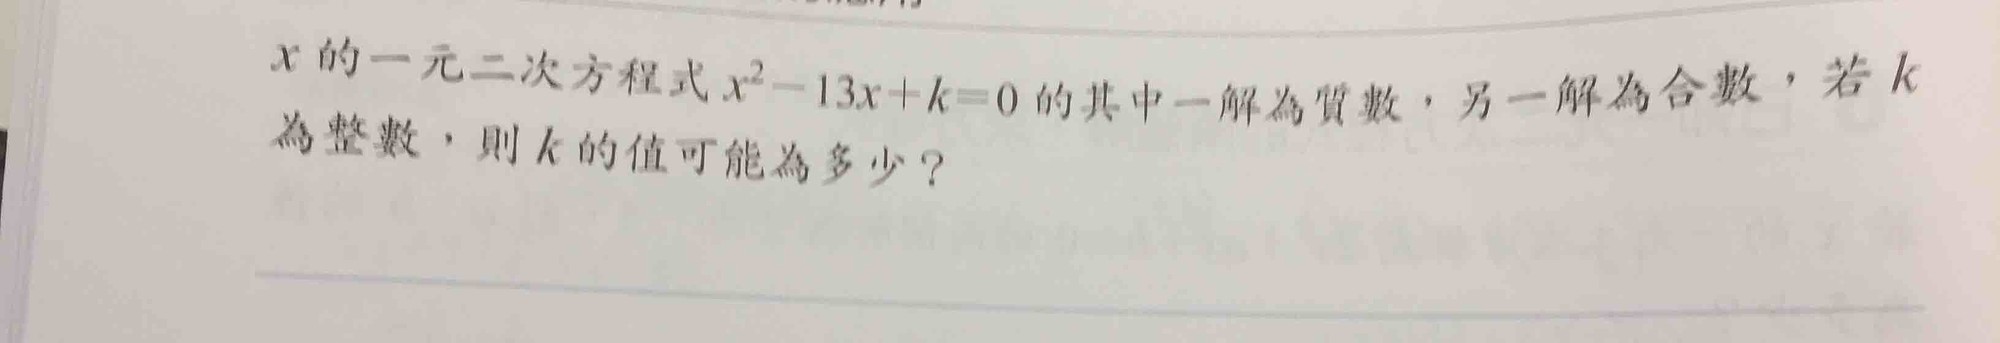 x 的一元二次方程式 x²－13x＋k＝0 的其中一解為質數，另一解為合數，若 k
為整數，則 k 的值可能為多少？